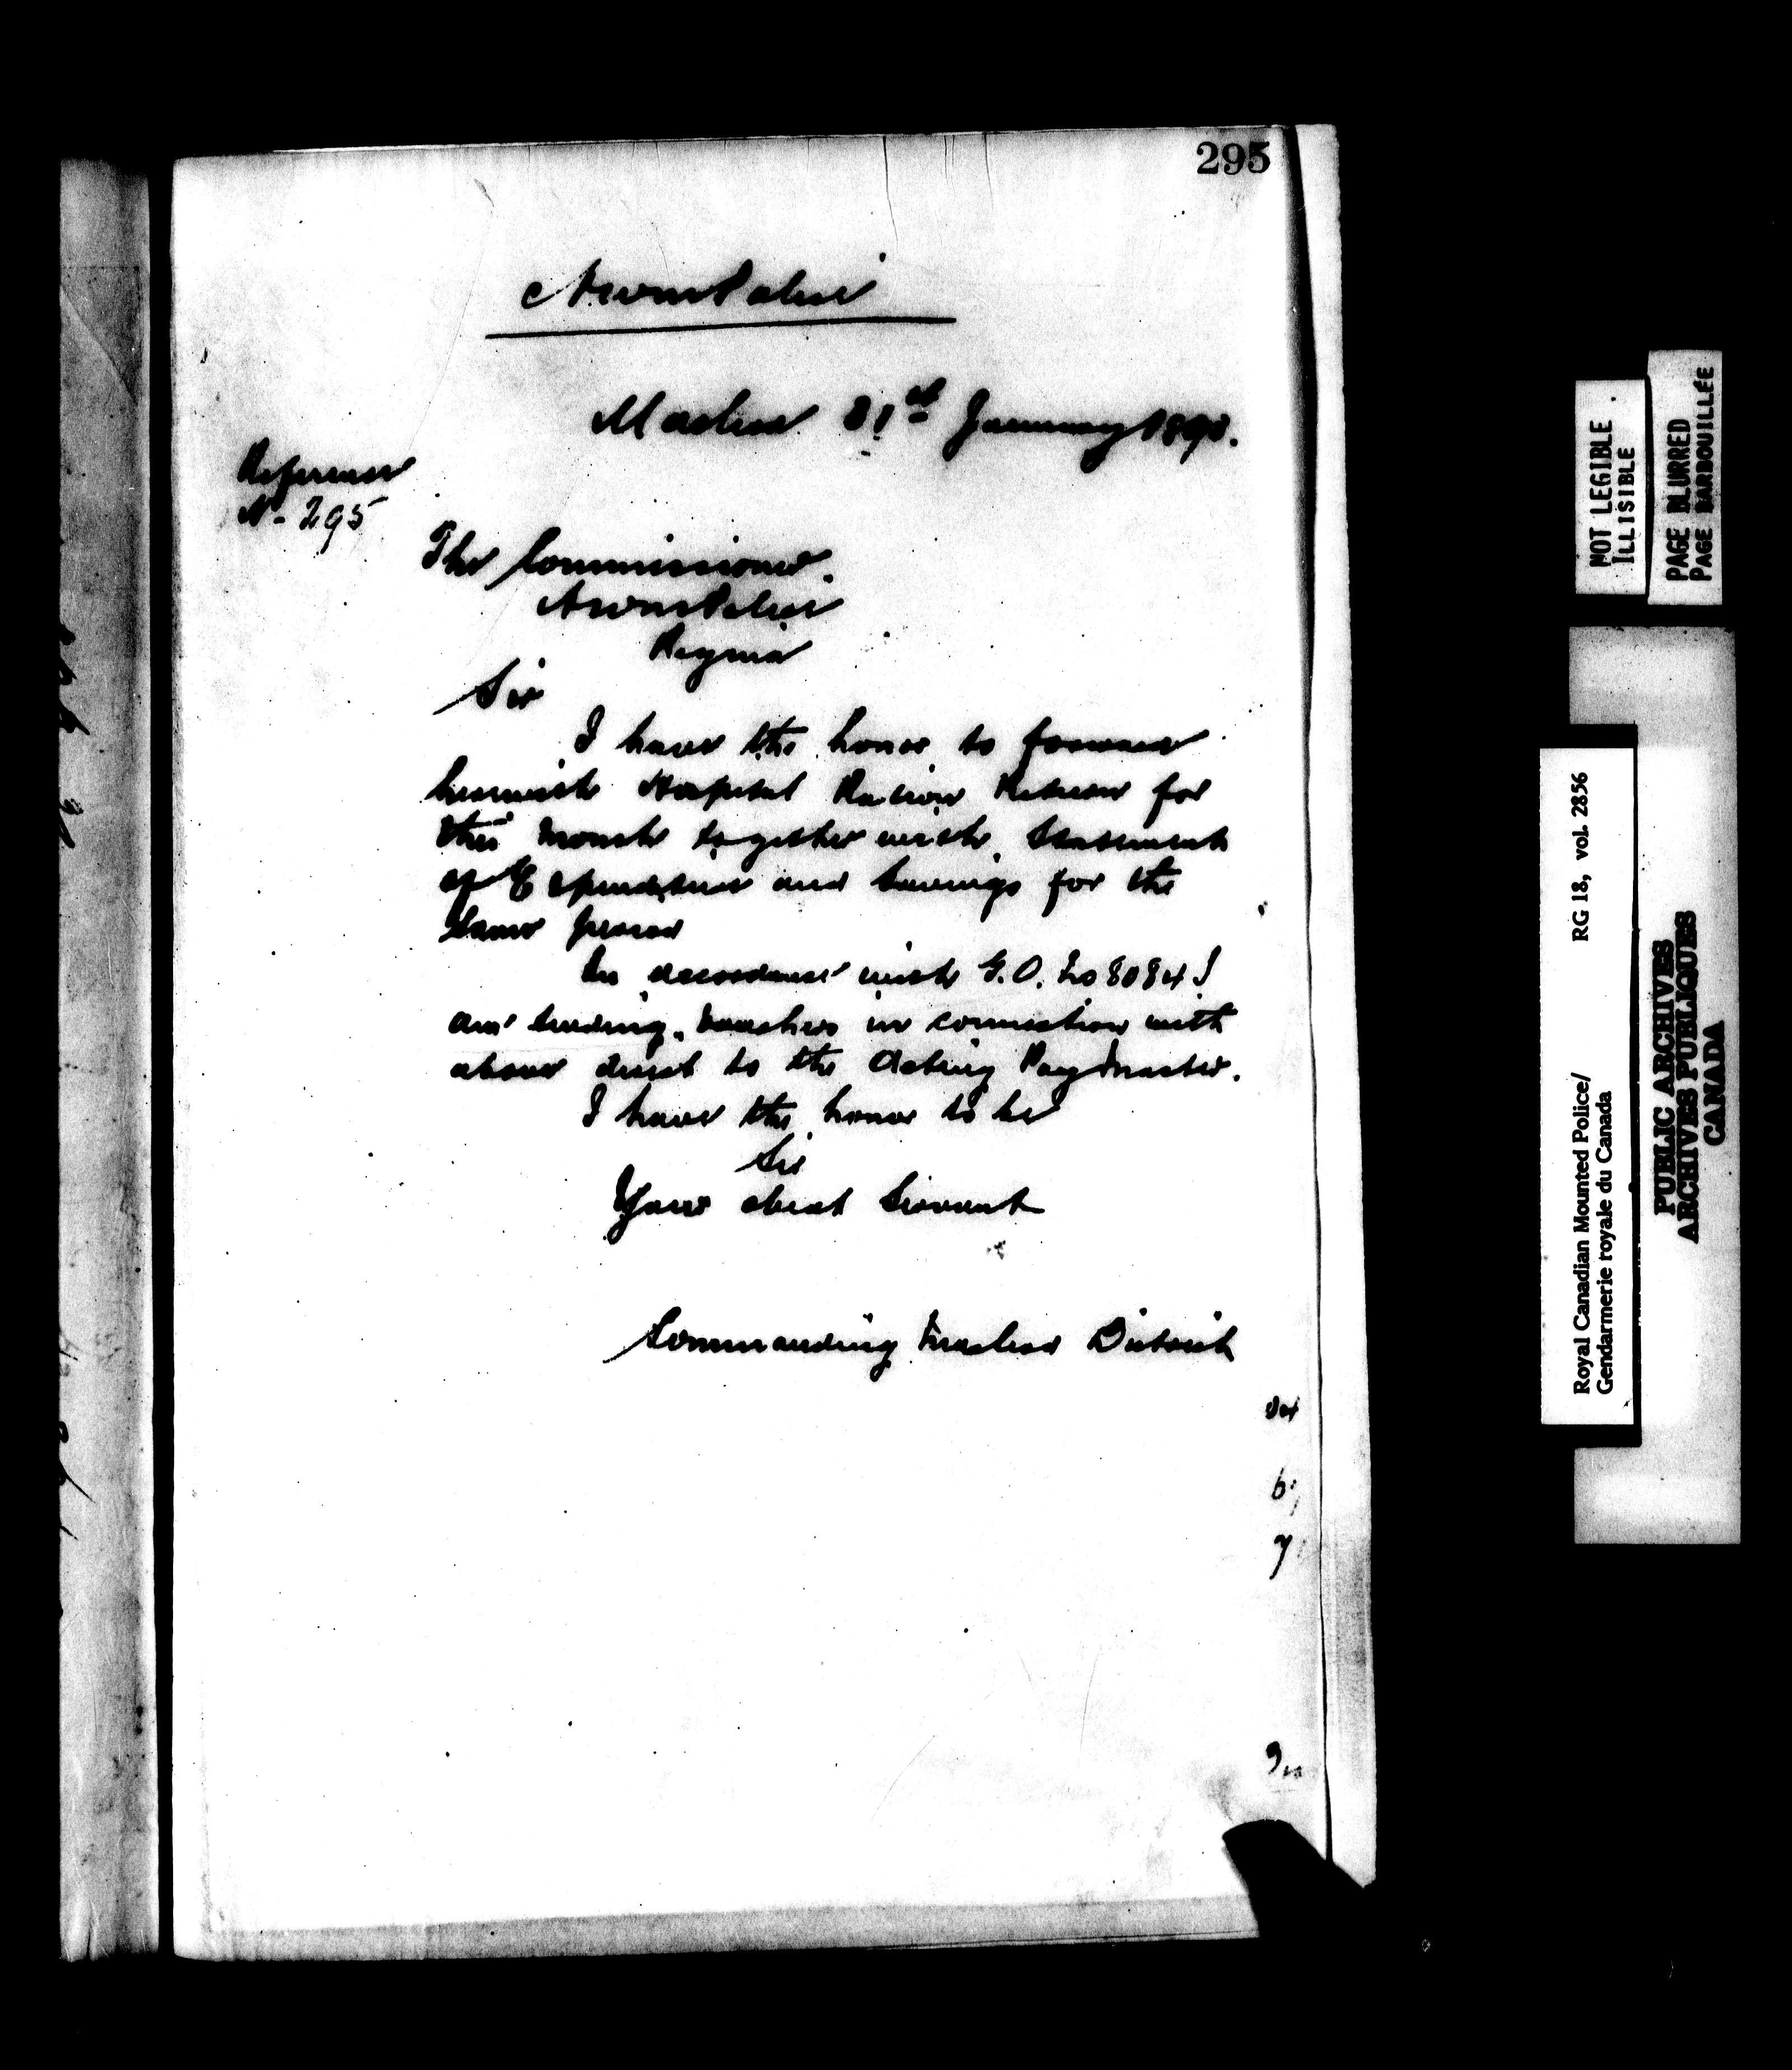 295
N.W.M. Police
Macleod 31st January 1890.
Reference
No. 295
The Commissioner.
N.W.M. Police
Regina
Sir
I have the honor to forward
herewith Hospital Ration Return for
this month together with Statement
of Expenditure and Savings for the
same period
In accordance with G.O. No 8084 I
am sending vouchers in connection with
above direct to the Acting Paymaster.
I have the honor to be
Sir
Your obedt Servant
Commanding Macleod District
NOT LEGIBLE
ILLISIBLE
PAGE BLURRED
PAGE BARBOUILLÉE
Royal Canadian Mounted Police/ RG 18, vol. 2856
Gendarmerie royale du Canada
PUBLIC ARCHIVES
ARCHIVES PUBLIQUES
CANADA